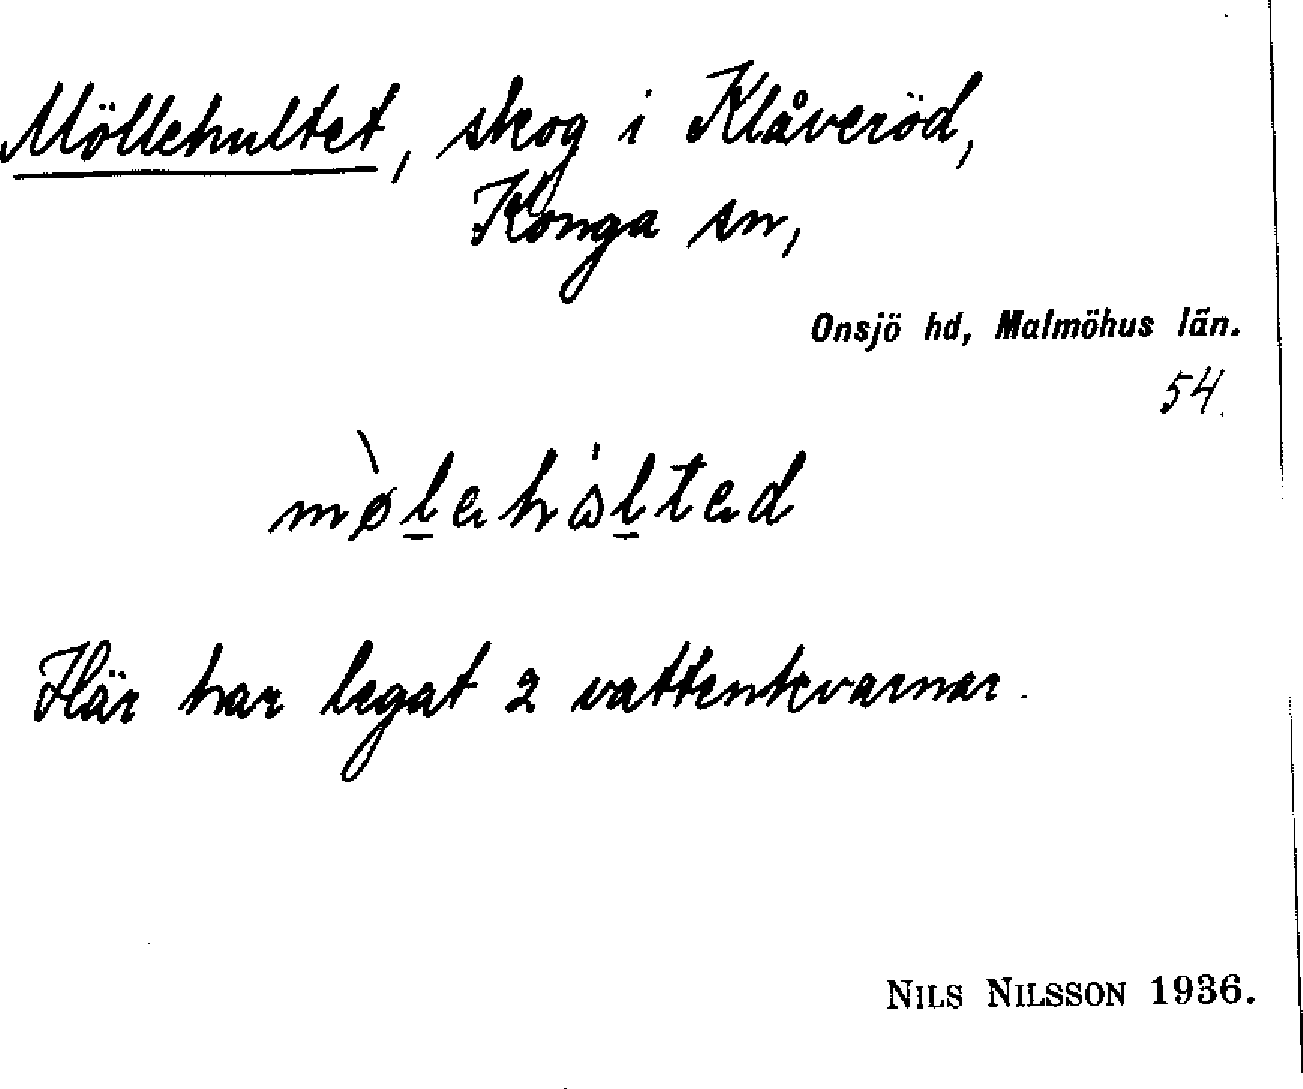 Möllehultet, skog i Klåveröd,
Konga sn,
Onsjö hd, Malmöhus län.
54.
mø̀lehålted
Här har legat 2 vattenkvarnar.
NILS NILSSON 1936.